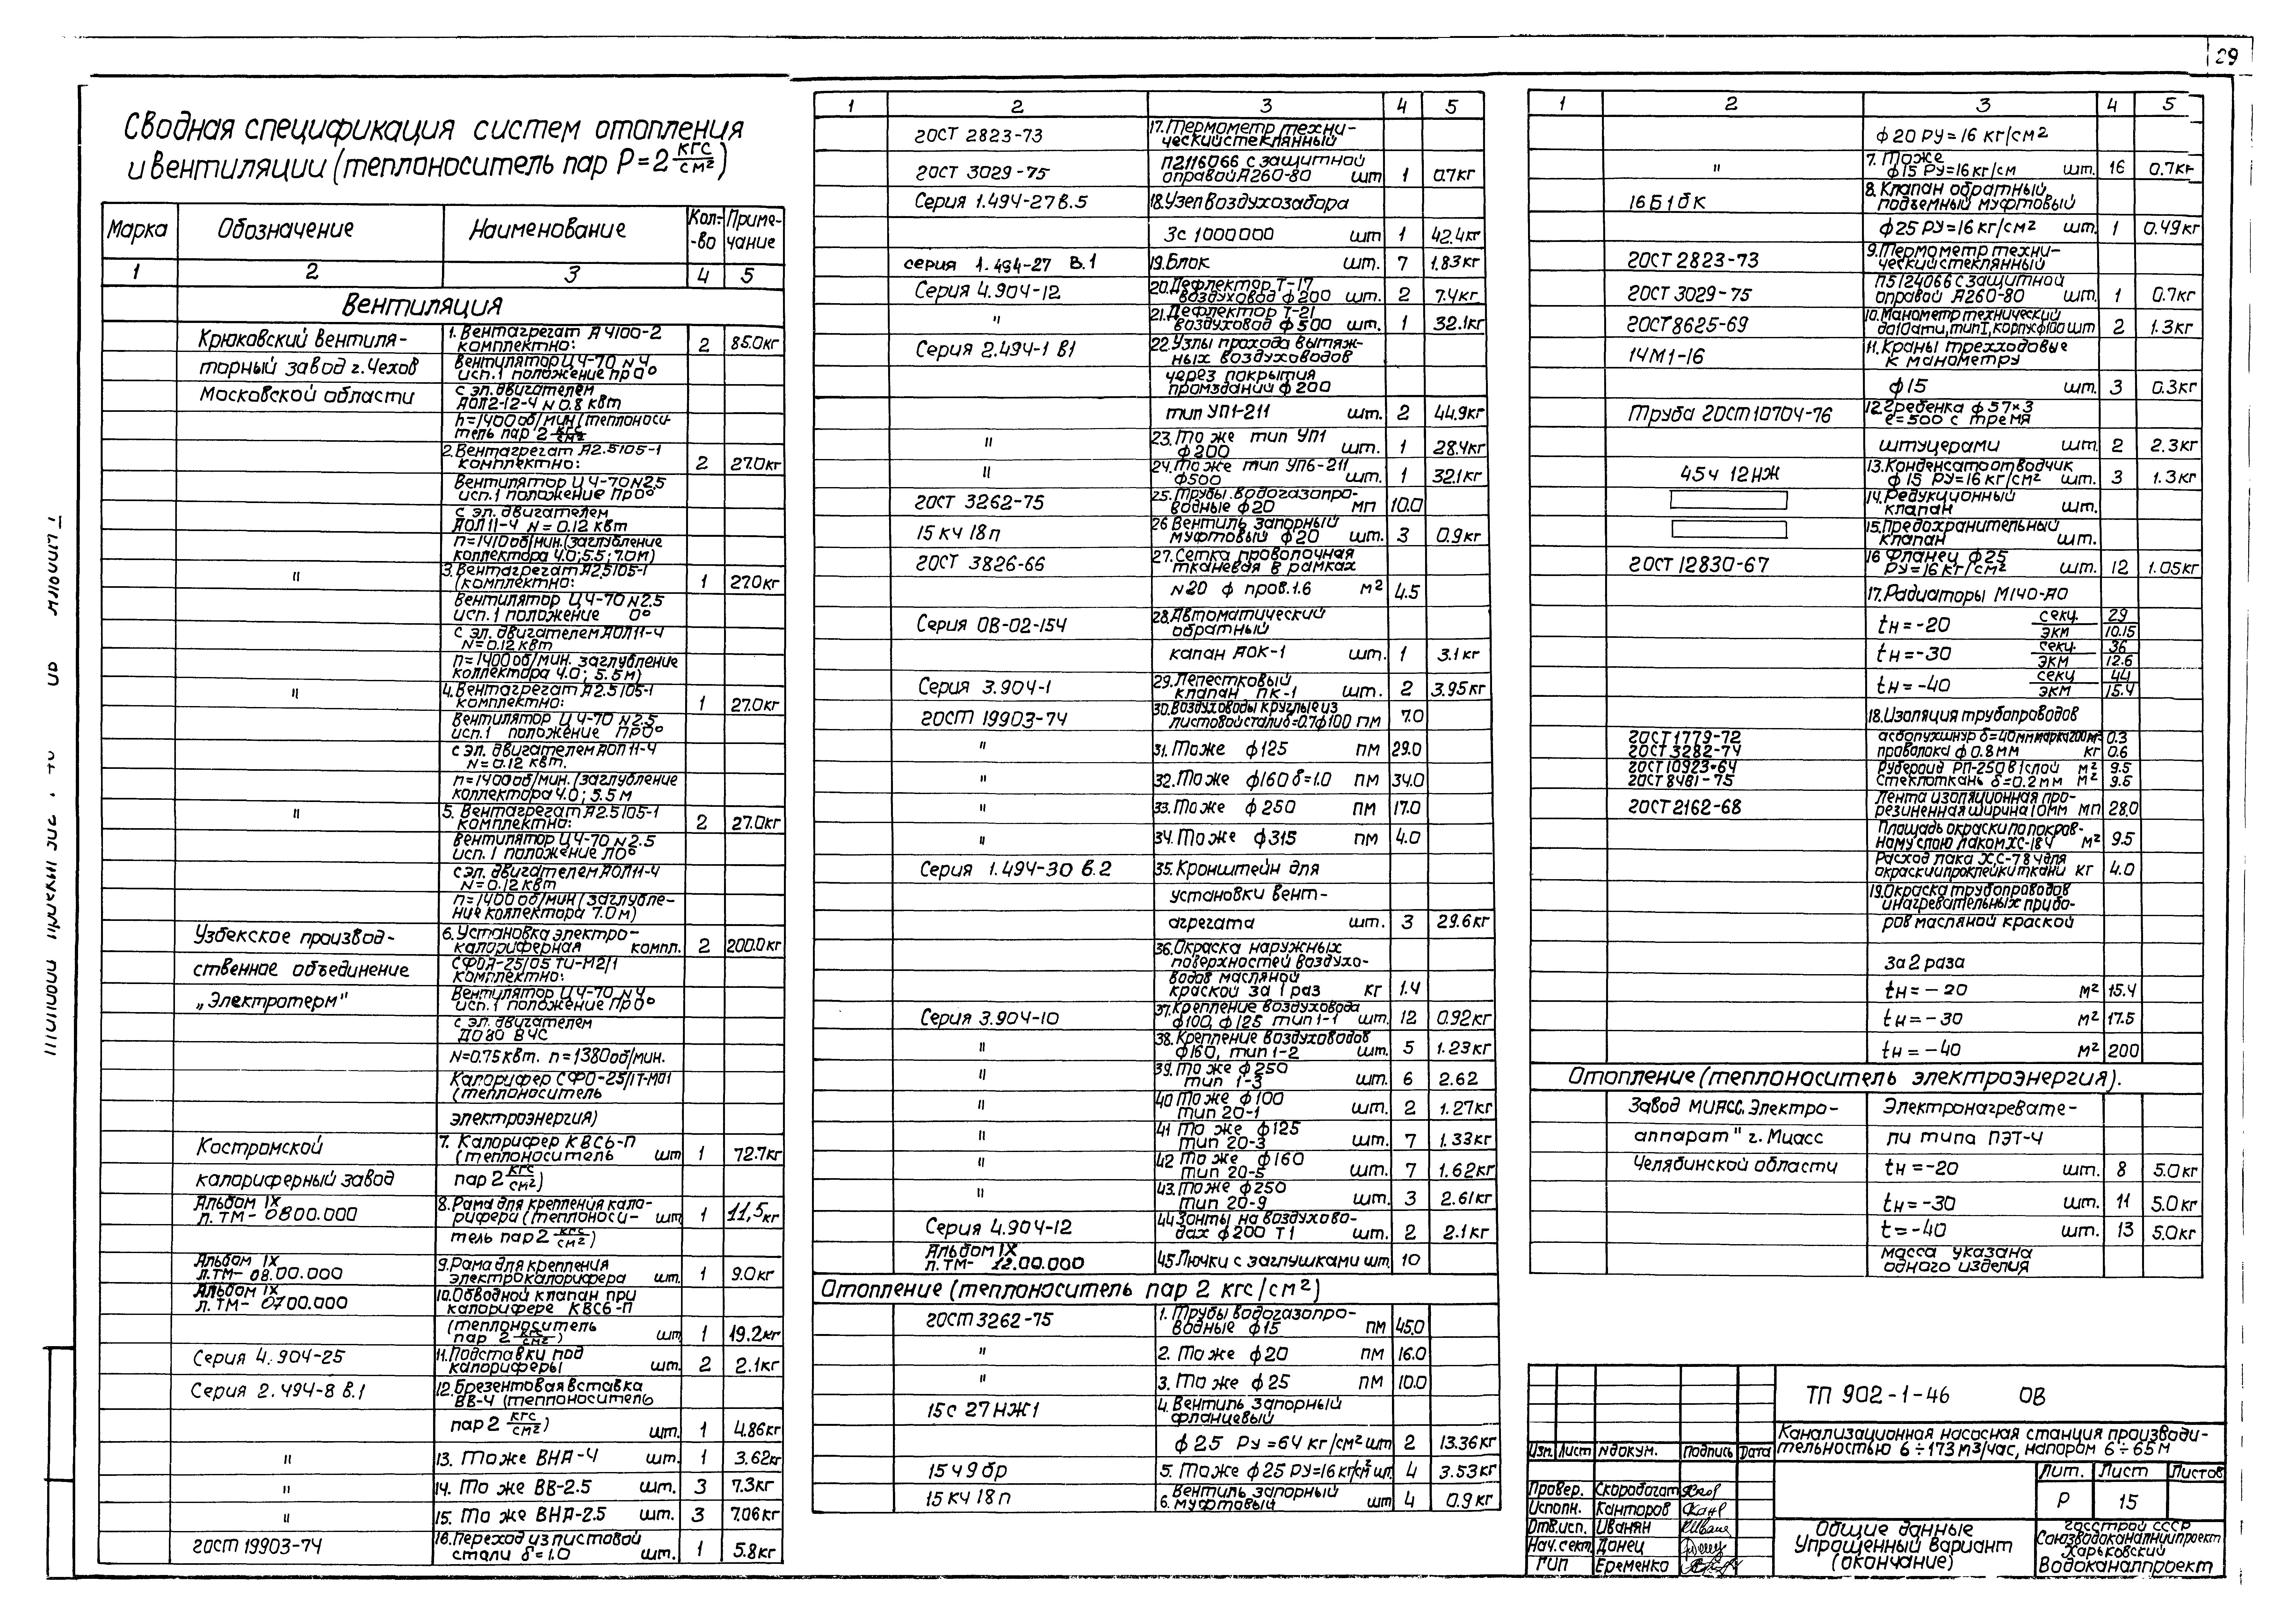 29
Сводная спецификация систем отопления
и вентиляции (теплоноситель пар Р=2 кгс/см²)
Марка Обозначение Наименование Кол-во Примечание
1 2 3 4 5
Вентиляция
Крюковский вентиля- 1. Вентагрегат А4100-2 комплектно: 2 85.0кг
торный завод г.Чехов Вентилятор Ц4-70 N4 исп.1 положение Пр0°
Московской области с эл. двигателем АОЛ2-12-4 N 0.8 квт
n=1400 об/мин (теплоноситель пар 2 кгс/см²
2. Вентагрегат А2.5105-1 комплектно: 2 27.0кг
Вентилятор Ц4-70 N2.5 исп.1 положение Пр0°
с эл. двигателем АОЛ11-4 N=0.12 квт
n=1410 об/мин. (заглубление коллектора 4.0; 5.5; 7.0м)
" 3. Вентагрегат А2.5105-1 (комплектно: 1 27.0кг
Вентилятор Ц4-70 N2.5 исп.1 положение 0°
с эл. двигателем АОЛ11-4 N=0.12 квт
n=1400 об/мин. заглубление коллектора 4.0; 5.5м)
" 4. Вентагрегат А2.5105-1 комплектно: 1 27.0кг
Вентилятор Ц4-70 N2.5 исп.1 положение ПР0°
с эл. двигателем АОЛ11-4 N=0.12 квт.
n=1400 об/мин. (заглубление коллектора 4.0; 5.5м
" 5. Вентагрегат А2.5105-1 комплектно: 2 27.0кг
Вентилятор Ц4-70 N2.5 исп.1 положение Л0°
с эл. двигателем АОЛ11-4 N=0.12 квт
n=1400 об/мин (заглубление коллектора 7.0м)
Узбекское производ- 6. Установка электрокалориферная компл. 2 200.0кг
ственное объединение СФОА-25/05 ТЦ-М2/1 комплектно:
„Электротерм" Вентилятор Ц4-70 N4 исп.1 положение Пр0°
с эл. двигателем ДО80 В4С
N=0.75 квт. n=1380 об/мин.
Калорифер СФО-25/1Т-М01 (теплоноситель
электроэнергия)
Костромской 7. Калорифер КВС6-П (теплоноситель шт 1 72.7кг
калориферный завод пар 2 кгс/см²)
Альбом IX л. ТМ-0800.000 8. Рама для крепления калорифера (теплоноси- шт 1 11,5кг
тель пар 2 кгс/см²)
Альбом IX л.ТМ-08.00.000 9. Рама для крепления электрокалорифера шт. 1 9.0кг
Альбом IX л.ТМ-0700.000 10. Обводной клапан при калорифере КВС6-П
(теплоноситель пар 2 кгс/см²) шт 1 19.2кг
Серия 4.904-25 11. Подставки под калориферы шт. 2 2.1кг
Серия 2.494-8 в.1 12. Брезентовая вставка ВВ-4 (теплоноситель
пар 2 кгс/см²) шт. 1 4.86кг
" 13. То же ВНА-4 шт. 1 3.62кг
" 14. То же ВВ-2.5 шт. 3 7.3кг
" 15. То же ВНА-2.5 шт. 3 7.06кг
гост 19903-74 16. Переход из листовой стали δ=1.0 шт. 1 5.8кг
1 2 3 4 5
ГОСТ 2823-73 17. Термометр технический стеклянный
ГОСТ 3029-75 П2116066 с защитной оправой А260-80 шт 1 0.7кг
Серия 1.494-27 В.5 18. Узел воздухозабора
3с 1000000 шт 1 42.4кг
серия 1.494-27 В.1 19. Блок шт. 7 1.83кг
Серия 4.904-12 20. Дефлектор Т-17 воздуховод ф200 шт. 2 7.4кг
" 21. Дефлектор Т-21 воздуховод ф500 шт. 1 32.1кг
Серия 2.494-1 В1 22. Узлы прохода вытяжных воздуховодов
через покрытия промзданий ф200
тип УП1-211 шт. 2 44.9кг
" 23. То же тип УП1 ф200 шт. 1 28.4кг
" 24. То же тип УП6-211 ф500 шт. 1 32.1кг
ГОСТ 3262-75 25. Трубы водогазопроводные ф20 мп 10.0
15 кч 18п 26 Вентиль запорный муфтовый ф20 шт. 3 0.9кг
ГОСТ 3826-66 27. Сетка проволочная тканевая в рамках
N20 ф пров.1.6 м² 4.5
Серия ОВ-02-154 28. Автоматический обратный
капан АОК-1 шт. 1 3.1кг
Серия 3.904-1 29. Лепестковый клапан ПК-1 шт. 2 3.95кг
гост 19903-74 30. Воздуховоды круглые из листовой стали δ=0.7 ф100 пм 7.0
" 31. То же ф125 пм 29.0
" 32. То же ф160 δ=1.0 пм 34.0
" 33. То же ф250 пм 17.0
" 34. То же ф315 пм 4.0
Серия 1.494-30 в.2 35. Кронштейн для
установки вент-
агрегата шт. 3 29.6кг
36. Окраска наружных поверхностей воздухо-
водов масляной краской за 1 раз кг 1.4
Серия 3.904-10 37. Крепление воздуховода ф100, ф125 тип 1-1 шт. 12 0.92кг
" 38. Крепление воздуховодов ф160, тип 1-2 шт. 5 1.23кг
" 39. То же ф250 тип 1-3 шт. 6 2.62
" 40 То же ф100 тип 20-1 шт. 2 1.27кг
" 41 То же ф125 тип 20-3 шт. 7 1.33кг
" 42 То же ф160 тип 20-5 шт. 7 1.62кг
" 43. То же ф250 тип 20-9 шт. 3 2.61кг
Серия 4.904-12 44 Зонты на воздуховодах ф200 Т1 шт. 2 2.1кг
Альбом IX л. ТМ- 12.00.000 45 Лючки с заглушками шт. 10
Отопление (теплоноситель пар 2 кгс/см²)
ГОСТ 3262-75 1. Трубы водогазопроводные ф15 пм 45.0
" 2. То же ф20 пм 16.0
" 3. То же ф25 пм 10.0
15с 27НЖ1 4. Вентиль запорный фланцевый
ф25 Ру=64 кг/см² шт 2 13.36кг
15ч 9бр 5. То же ф25 Ру=16 кг/см² шт. 4 3.53кг
15 кч 18п 6. Вентиль запорный муфтовый шт 4 0.9кг
1 2 3 4 5
ф20 Ру=16 кг/см²
" 7. То же ф15 Ру=16 кг/см шт. 16 0.7кг
16Б1бк 8. Клапан обратный подъемный муфтовый
ф25 Ру=16 кг/см² шт. 1 0.49кг
ГОСТ 2823-73 9. Термометр технический стеклянный
ГОСТ 3029-75 П5124066 с защитной оправой А260-80 шт. 1 0.7кг
ГОСТ 8625-69 10. Манометр технический до 10 ати, тип I, корпус ф100 шт 2 1.3кг
14М1-16 11. Краны трехходовые к манометру
ф15 шт. 3 0.3кг
Труба ГОСТ 10704-76 12. Гребенка ф57×3 ℓ=500 с тремя
штуцерами шт. 2 2.3кг
45ч 12НЖ 13. Конденсатоотводчик ф15 Ру=16 кг/см² шт. 3 1.3кг
14. Редукционный клапан шт.
15. Предохранительный клапан шт.
ГОСТ 12830-67 16 Фланец ф25 Ру=16 кг/см² шт. 12 1.05кг
17. Радиаторы М140-АО
tн=-20 секц. 29 экм 10.15
tн=-30 секц. 36 экм 12.6
tн=-40 секц 44 экм 15.4
18. Изоляция трубопроводов
ГОСТ 1779-72 асбопухшнур δ=40мм марка 200 м³ 0.3
ГОСТ 3282-74 проволока ф0.8мм кг 0.6
ГОСТ 10923-64 Рубероид РП-250 в 1 слой м² 9.5
ГОСТ 8481-75 Стеклоткань δ=0.2мм м² 9.5
ГОСТ 2162-68 Лента изоляционная прорезиненная ширина 10мм мп 28.0
Площадь окраски по покровному слою лаком ХС-784 м² 9.5
Расход лака ХС-784 для окраски и проклейки ткани кг 4.0
19. Окраска трубопроводов и нагревательных прибо-
ров масляной краской
за 2 раза
tн=-20 м² 15.4
tн=-30 м² 17.5
tн=-40 м² 200
Отопление (теплоноситель электроэнергия).
Завод МИАСС. Электро- Электронагревате-
аппарат" г. Миасс ли типа ПЭТ-4
Челябинской области tн=-20 шт. 8 5.0кг
tн=-30 шт. 11 5.0кг
t=-40 шт. 13 5.0кг
масса указана одного изделия
ТП 902-1-46 ОВ
Канализационная насосная станция производи-
тельностью 6÷173 м3/час, напором 6÷65м
Изм. Лист N докум. Подпись Дата
Лит. Лист Листов
Р 15
Провер. Скоробогат
Исполн. Канторов
Отв.исп. Иванян
Нач.сект. Донец
ГИП Еременко
Общие данные
Упрощенный вариант
(окончание)
госстрой ссср
Союзводоканалниипроект
Харьковский
Водоканалпроект